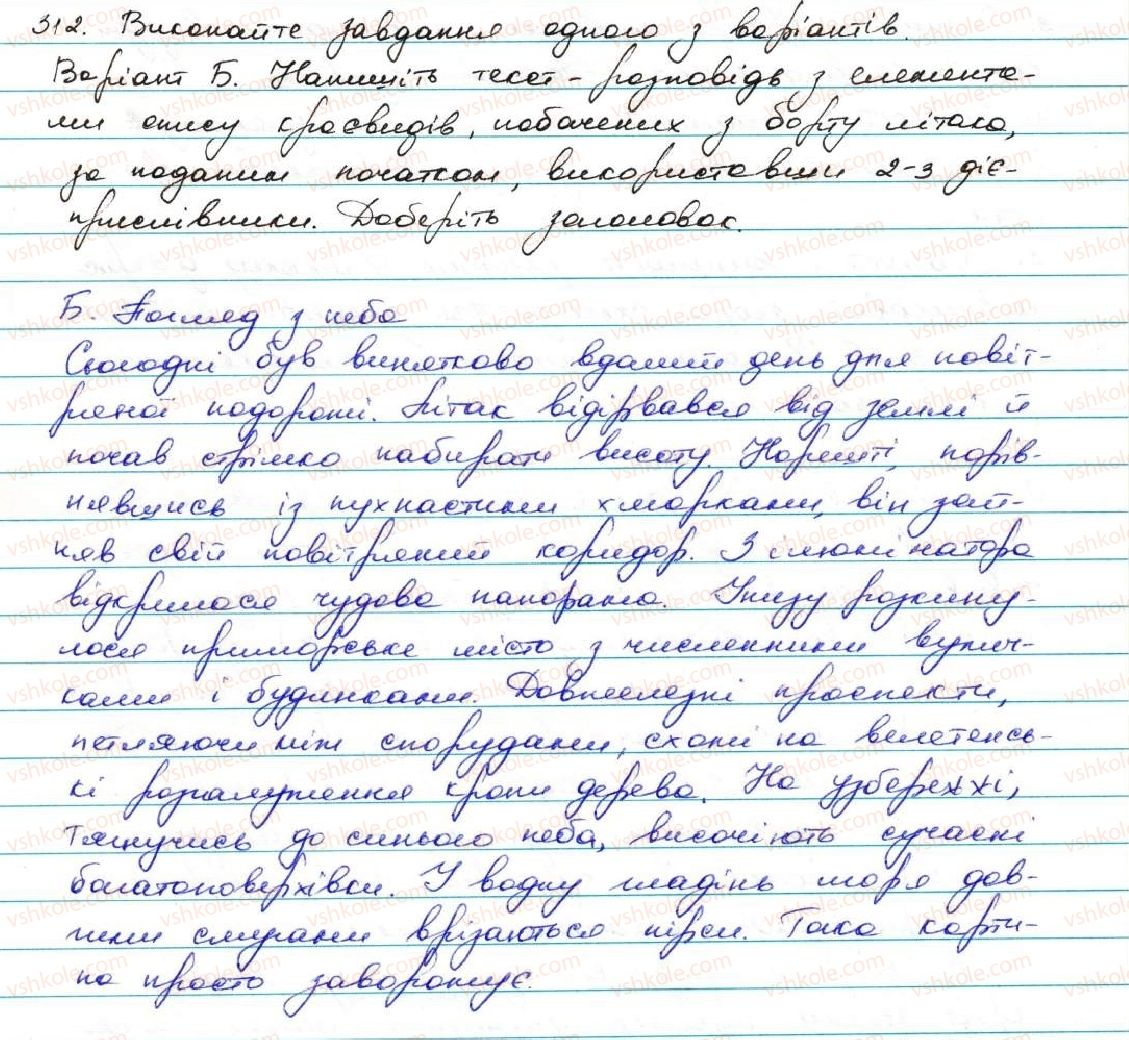 312. Виконайте завдання одного з варіантів.
Варіант Б. Напишіть текст-розповідь з елемента-
ми опису краєвидів, побачених з борту літака,
за поданим початком, використавши 2-3 діє-
прислівники. Доберіть заголовок.
Б. Погляд з неба
Сьогодні був винятково вдалий день для повіт-
ряної подорожі. Літак відірвався від землі й
почав стрімко набирати висоту. Нарешті, порів-
нявшись із пухнастими хмарками, він зай-
няв свій повітряний коридор. З ілюмінатора
відкрилася чудова панорама. Унизу розкину-
лося приморське місто з численними вулич-
ками і будинками. Довжелезні проспекти,
петляючи між спорудами, схожі на велетенсь-
кі розгалуження крони дерева. На узбережжі,
тягнучись до синього неба, височіють сучасні
багатоповерхівки. У водну гладінь моря дов-
гими смугами врізаються пірси. Така карти-
на просто заворожує.